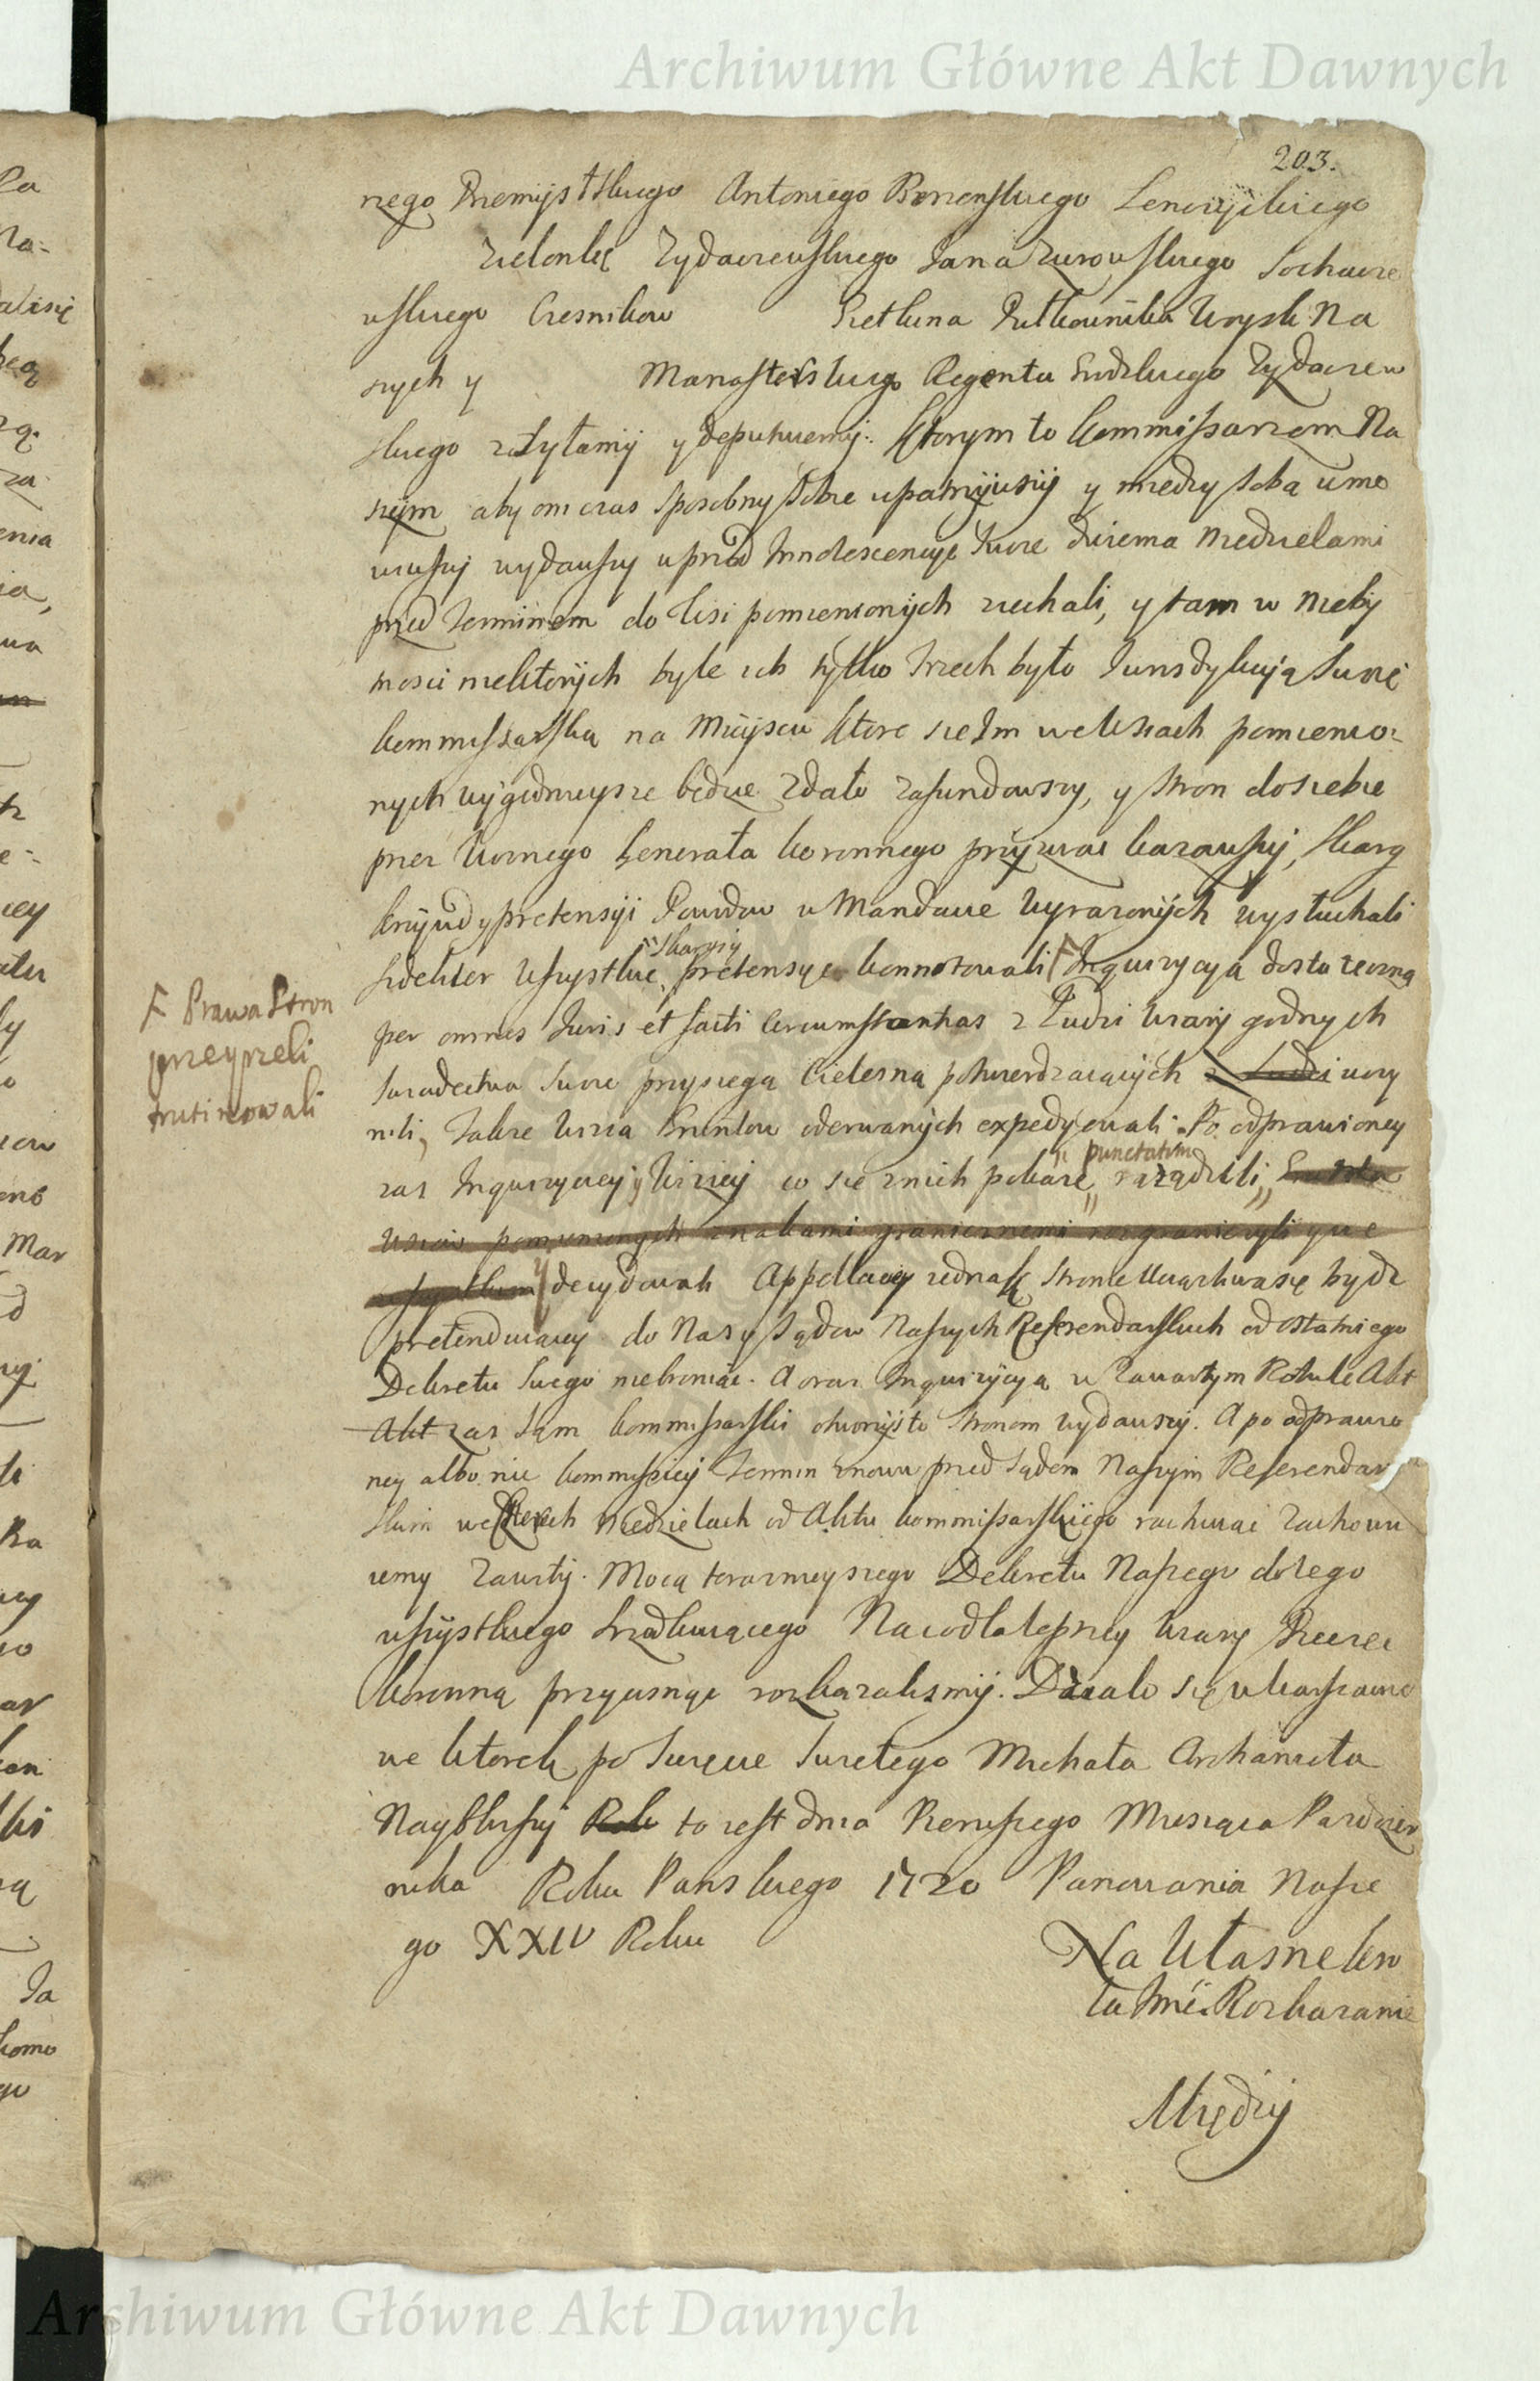 Archiwum Główne Akt Dawnych
203.
nego Przemyskiego Antoniego Łenczyckiego
Zielonkę Zydaczewskiego Jana Zurowskiego Sochacze
wskiego Czesnikow Pułkownika Woysk Na
szych y Manasterskiego Regenta Grodzkiego Zydaczew
skiego zsyłamy y deputuiemy. Ktorym to Kommissarzom Na
szym aby oni czas sposobny sobie upatrzywszy y miedzy sobą umo
wiwszy wydawszy wprzod Innotescencye swoie dwiema Niedzielami
przed Terminem do Wsi pomienionych ziechali, y tam w Nieby
tnosci niektorych byle ich tylko trzech było Jurisdykcyą swoię
Kommissarską na Mieyscu ktore sie Im we Wsiach pomienio:
nych wygodnieysze będzie zdało zafundowszy, y stron do siebie
przez Woznego Generała Koronnego przyzwac kazawszy, skarg
krzywd y pretensyi Powodow w Mandacie wyrazonych wysłuchali
fideliter wszystkie skargi pretensye konnotowali F Inquizycyą dostateczną
F Prawa Stron
przeyrzeli
trutinowali
per omnes Juris et facti Circumstantias z Ludzi Wiary godnych
swiadectwa swoie przysięgą Cielesną potwierdzaiących z Ludzi uczy
nili, Takze Wizia Gruntow oderwanych expedyowali. Po odprawioney
zas Inquizycyey y Wiziey co sie z nich pokaze punctatim rozsądzili,
Wsiow pomienionych znakami granicznemi rozgraniczyli y we
wszystkim y decydowali Appellacyi iednak stronie Ukrzywdzoną się bydz
pretenduiącey do Nas y Sądow Naszych Referendarskich od ostatniego
Dekretu swego niebroniąc. A oraz Inquizycyą w Zawartym Rotule Akt
Akt zas sam Kommissarski otworzysto stronom wydawszy. A po odprawio
ney albo nie Kommissiey Termin znowu przed Sądem Naszym Referendar
skim we czterech Niedzielach od Aktu Kommissarskiego rachuiąc zachowu
iemy zawity. Mocą teraznieyszego Dekretu Naszego do tego
wszystkiego Na co dla lepszey Wiary Pieczęc
Koronną przycisnąc rozkazalismy. Działo się w Warszawie
we Wtorek po Swięcie Swiętego Michała Archanioła
Nayblizszy Roku to iest dnia Pierwszego Miesiąca Pazdzier
nika Roku Panskiego 1720 Panowania Nasze
go XXIV Roku
Na Własne Kro
la Jmci Rozkazanie
Między
Archiwum Główne Akt Dawnych